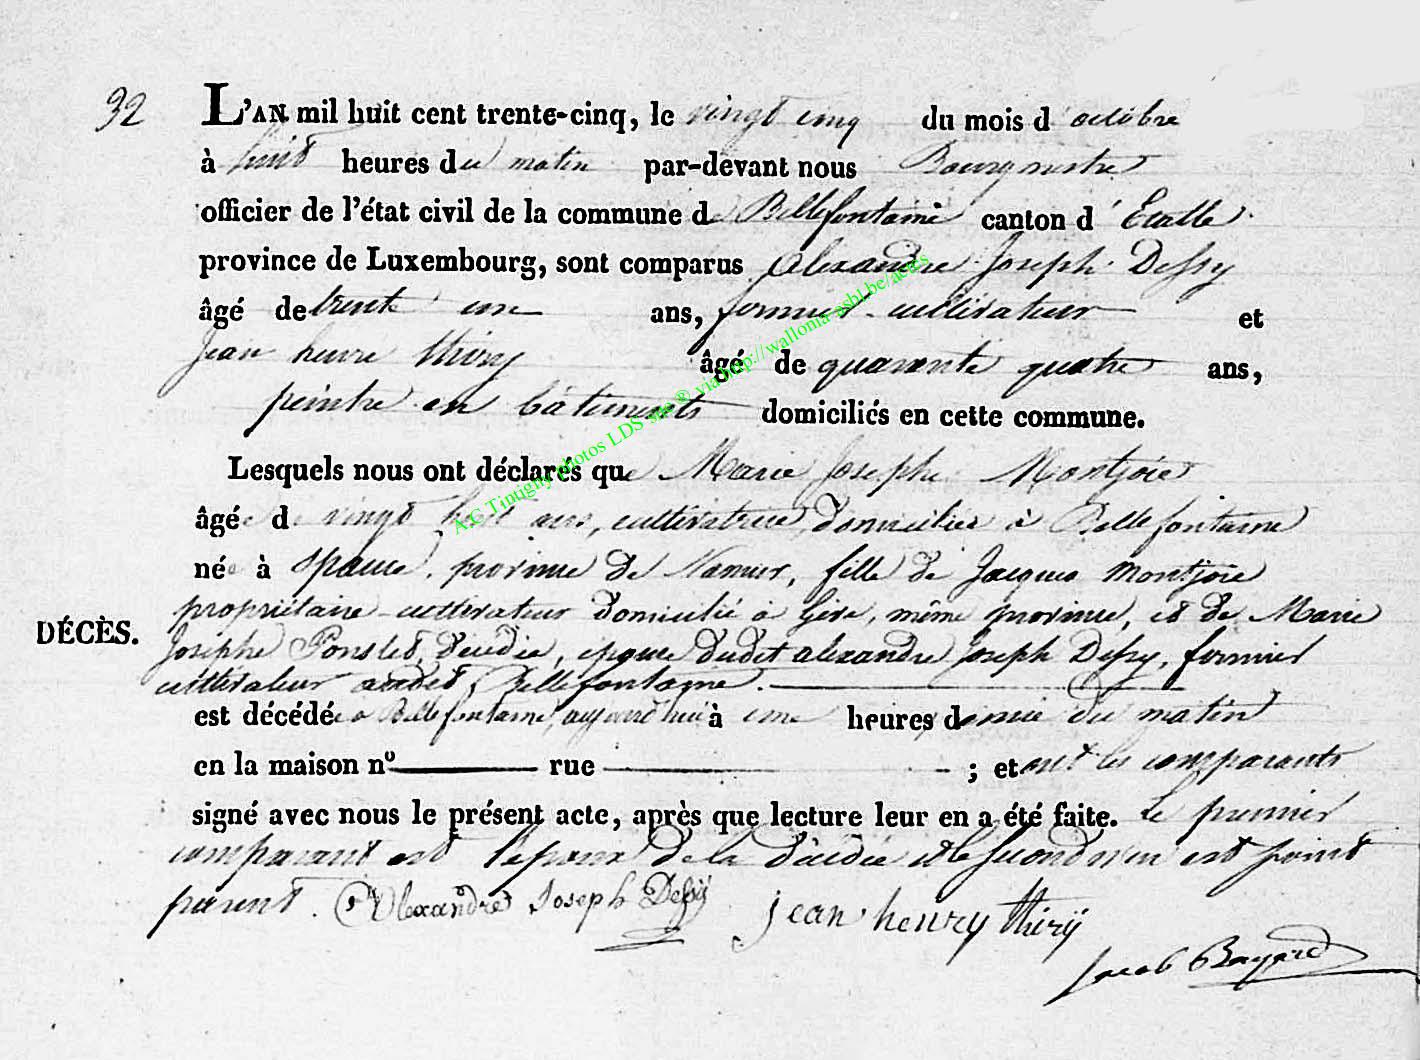 32
L'AN mil huit cent trente-cinq, le vingt cinq du mois d'octobre
à huit heures du matin par-devant nous Bourgmestre
officier de l'état civil de la commune de Bellefontaine canton d'Etalle
province de Luxembourg, sont comparus Alexandre Joseph Dessy
âgé de trente un ans, fermier cultivateur et
Jean henri thiry âgé de quarante quatre ans,
peintre en bâtiments domiciliés en cette commune.
Lesquels nous ont déclarés que Marie Josephe Montjoie
âgée de vingt huit ans, cultivatrice, domiciliée à Bellefontaine
née à province de Namur, fille de Jacques Montjoie
propriétaire cultivateur domicilié à même province, et de Marie
DÉCÈS.
Josephe Ponslet, décédée, épouse dudit alexandre Joseph Dessy, fermier
cultivateur audit Bellefontaine.
est décédée à Bellefontaine, aujourd'hui à une heures, demie du matin
en la maison nº rue ; et ont les comparants
signé avec nous le présent acte, après que lecture leur en a été faite. le premier
comparant est l'epoux de la décédée et le second n'en est point
parent. Alexandre Joseph Dessÿ jean henry thirÿ
Jacob Bayard
A.C Tintigny photos LDS site ® via http://wallonia-asbl.be/actes